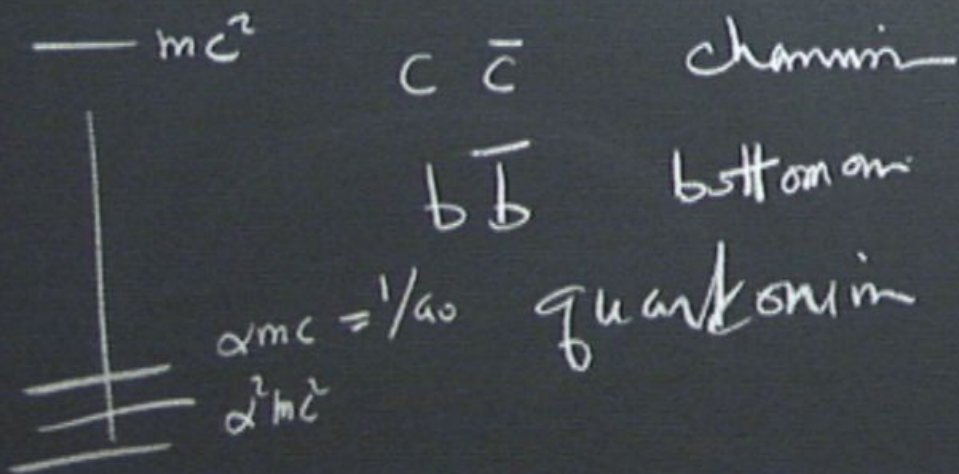 mc²
c c̅ charmonium
b b̅ bottomom
αmc = 1/a₀ quarkonium
α²mc²